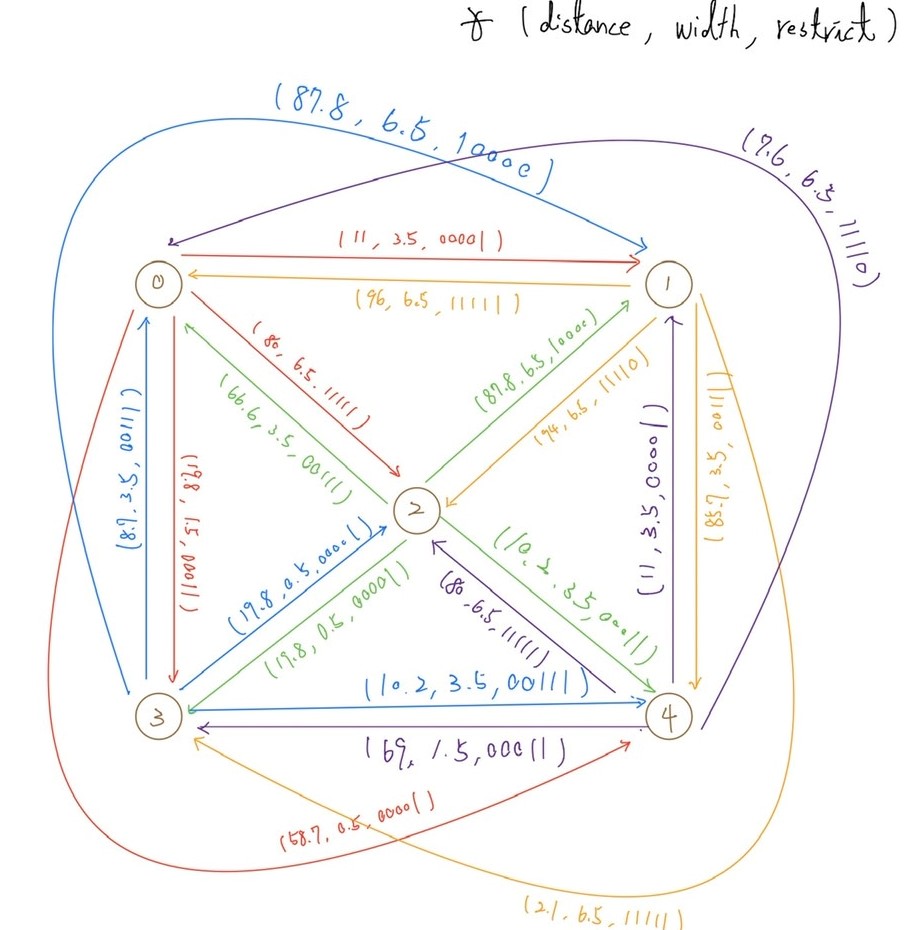 * (distance, width, restrict)
(87.8, 6.5, 10000)
(7.6, 6.5, 11110)
(11, 3.5, 00001)
0
1
(96, 6.5, 11111)
(80, 6.5, 11111)
(87.8, 6.5, 10000)
(66.6, 3.5, 00111)
(94, 6.5, 11110)
(8.7, 3.5, 00111)
(19.8, 1.5, 00011)
(11, 3.5, 00001)
(85.7, 3.5, 00111)
2
(19.8, 0.5, 00001)
(19.8, 0.5, 00001)
(10.2, 3.5, 00111)
(80, 6.5, 11111)
(10.2, 3.5, 00111)
3
4
(69, 1.5, 00011)
(58.7, 0.5, 00001)
(2.1, 6.5, 11111)